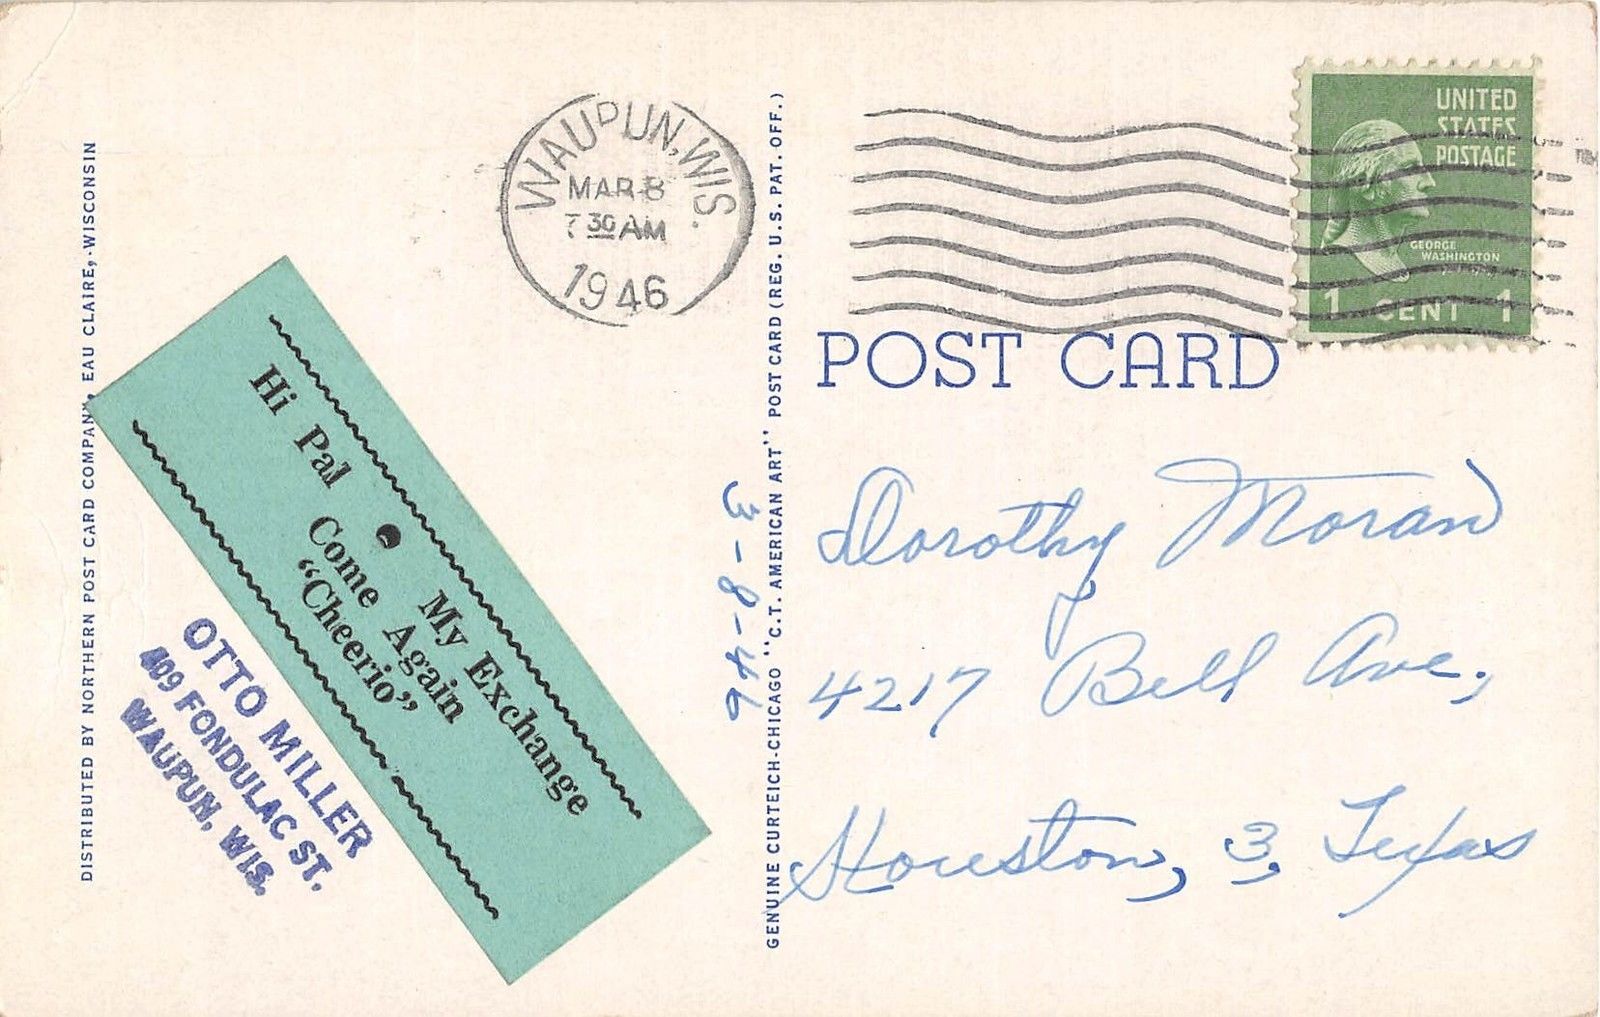 DISTRIBUTED BY NORTHERN POST CARD COMPANY, EAU CLAIRE, WISCONSIN
WAUPUN, WIS.
MAR 8
7 30 AM
1946
Hi Pal • My Exchange
Come Again
“Cheerio”
OTTO MILLER
409 FONDULAC ST.
WAUPUN, WIS.
3-8-46
GENUINE CURTEICH-CHICAGO "C.T. AMERICAN ART" POST CARD (REG. U.S. PAT. OFF.)
UNITED
STATES
POSTAGE
GEORGE
WASHINGTON
1 CENT 1
POST CARD
Dorothy Moran
4217 Bell Ave,
Houston, 3, Texas